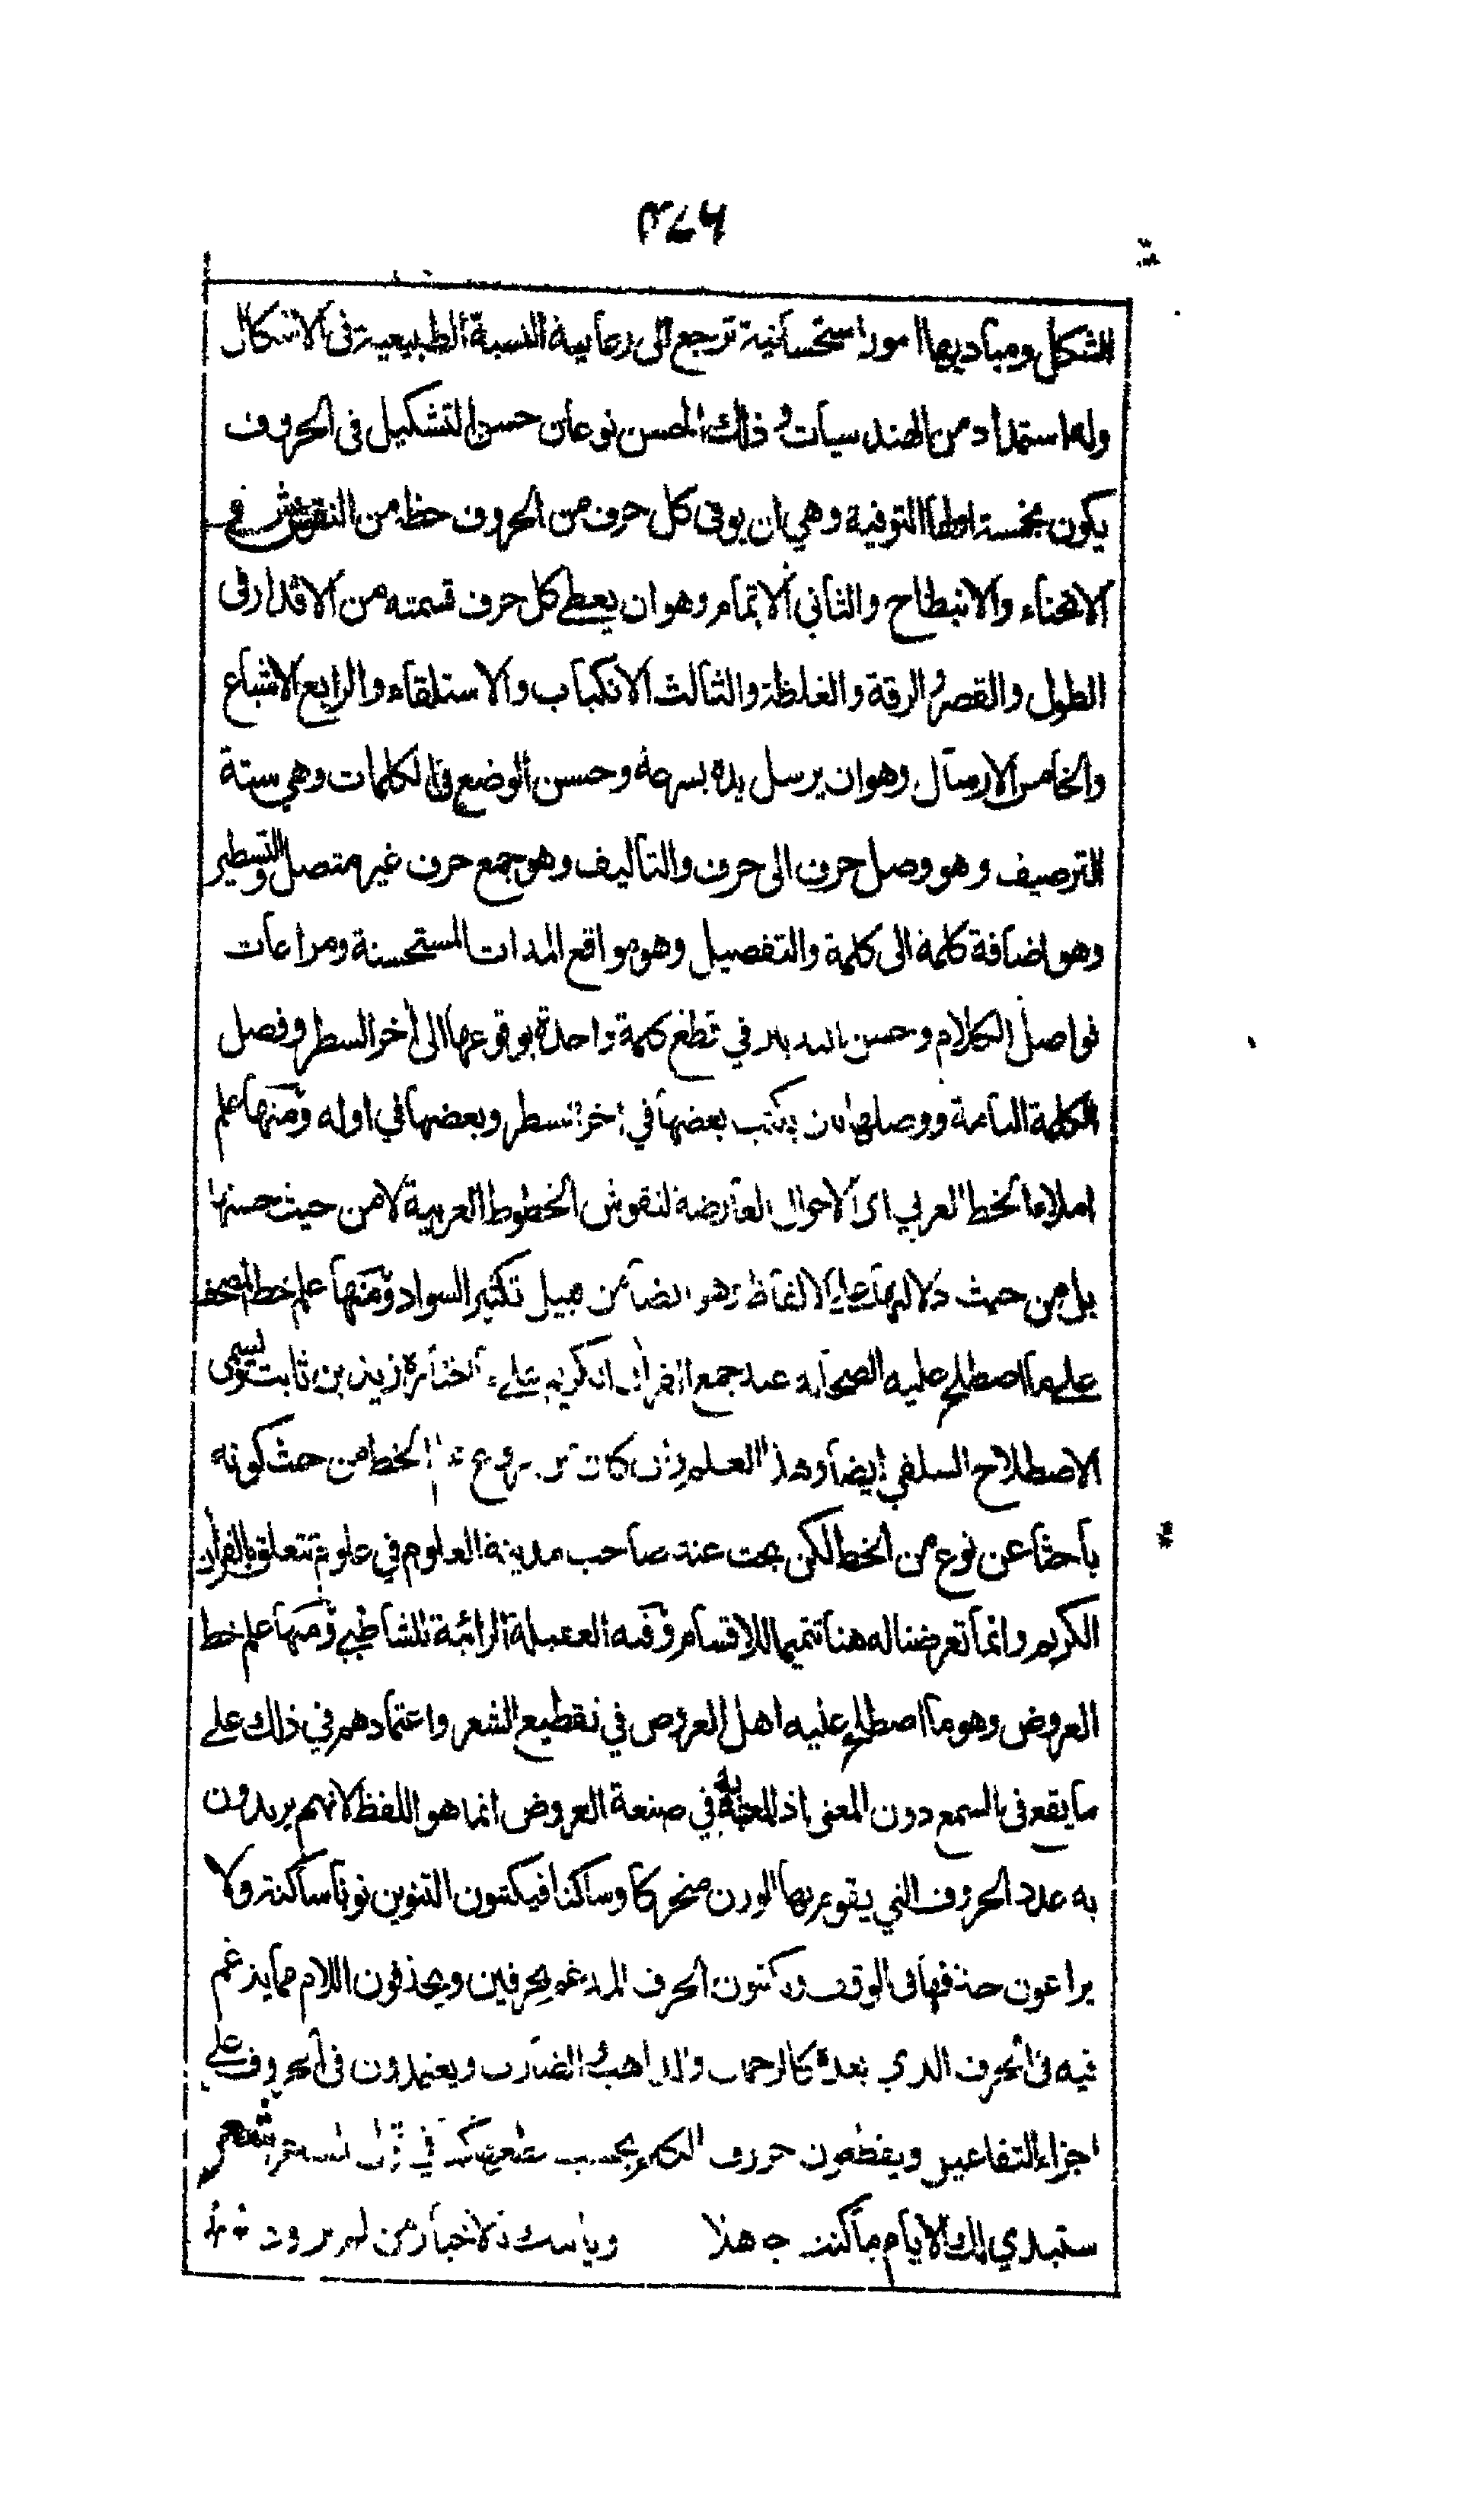 ٣٧٦
الشكل ومباديها امور استحسانية ترجع الى رعاية النسبة الطبيعية فى الاشكال
وله استمداد من الهندسيات وذلك الحسن نوعان حسن التشكيل فى الحروف
يكون بخمسة اولها التوفية وهي ان يوفى كل حرف من الحروف حظه من النقوش فى
الانحناء والانبطاح والثاني الاتمام وهو ان يعطى كل حرف قسمته من الاقدار فى
الطول والقصر والرقة والغلظة والثالث الانكباب والاستلقاء والرابع الاشباع
والخامس الارسال وهو ان يرسل يده بسرعة وحسن الوضع فى الكلمات وهي ستة
الترصيف وهو وصل حرف الى حرف والتاليف وهو جمع حرف غير متصل والتسطير
وهو اضافة كلمة الى كلمة والتفصيل وهو مواقع المدات المستحسنة ومراعات
فواصل الكلام وحسن التدبير في قطع كلمة واحدة بوقوعها الى اخر السطر وفصل
الكلمة التامة ووصلها بان يكتب بعضها في اخر السطر وبعضها في اوله ومنها علم
املاء الخط العربي اى الاحوال العارضة لنقوش الخطوط العربية لا من حيث حسنها
بل من حيث دلالتها على الالفاظ وهو ايضا من قبيل تكثير السواد ومنها علم خط المصحف
على ما اصطلح عليه الصحابة عند جمع القران الكريم على ما اختاره زيد بن ثابت ويسمى
الاصطلاح السلفي ايضا وهذا العلم وان كان من فروع علم الخط من حيث كونه
باحثا عن نوع من الخط لكن بحث عنه صاحب مدينة العلوم في علوم تتعلق بالقران
الكريم وانما تعرضنا له هنا تتميما للاقسام وفيه العقيلة الرائية للشاطبي ومنها علم خط
العروض وهو ما اصطلح عليه اهل العروض في تقطيع الشعر واعتمادهم في ذلك على
ما يقع فى السمع دون المعنى اذ المعتد به في صنعة العروض انما هو اللفظ لانهم يريدون
به عدد الحروف التي يقوم بها الوزن متحركا وساكنا فيكتبون التنوين نونا ساكنة ولا
يراعون حذفها فى الوقف ويكتبون الحرف المدغم بحرفين ويحذفون اللام مما يدغم
فيه فى الحرف الذي بعده كالرحمن والذاهب والضارب ويعتمدون فى الحروف على
اجزاء التفاعيل ويقطعون حروف الكلم بحسب تقطيعها كما في قول الشاعر شعر
ستبدي لك الايام ما كنت جاهلا وياتيك بالاخبار من لم تزود